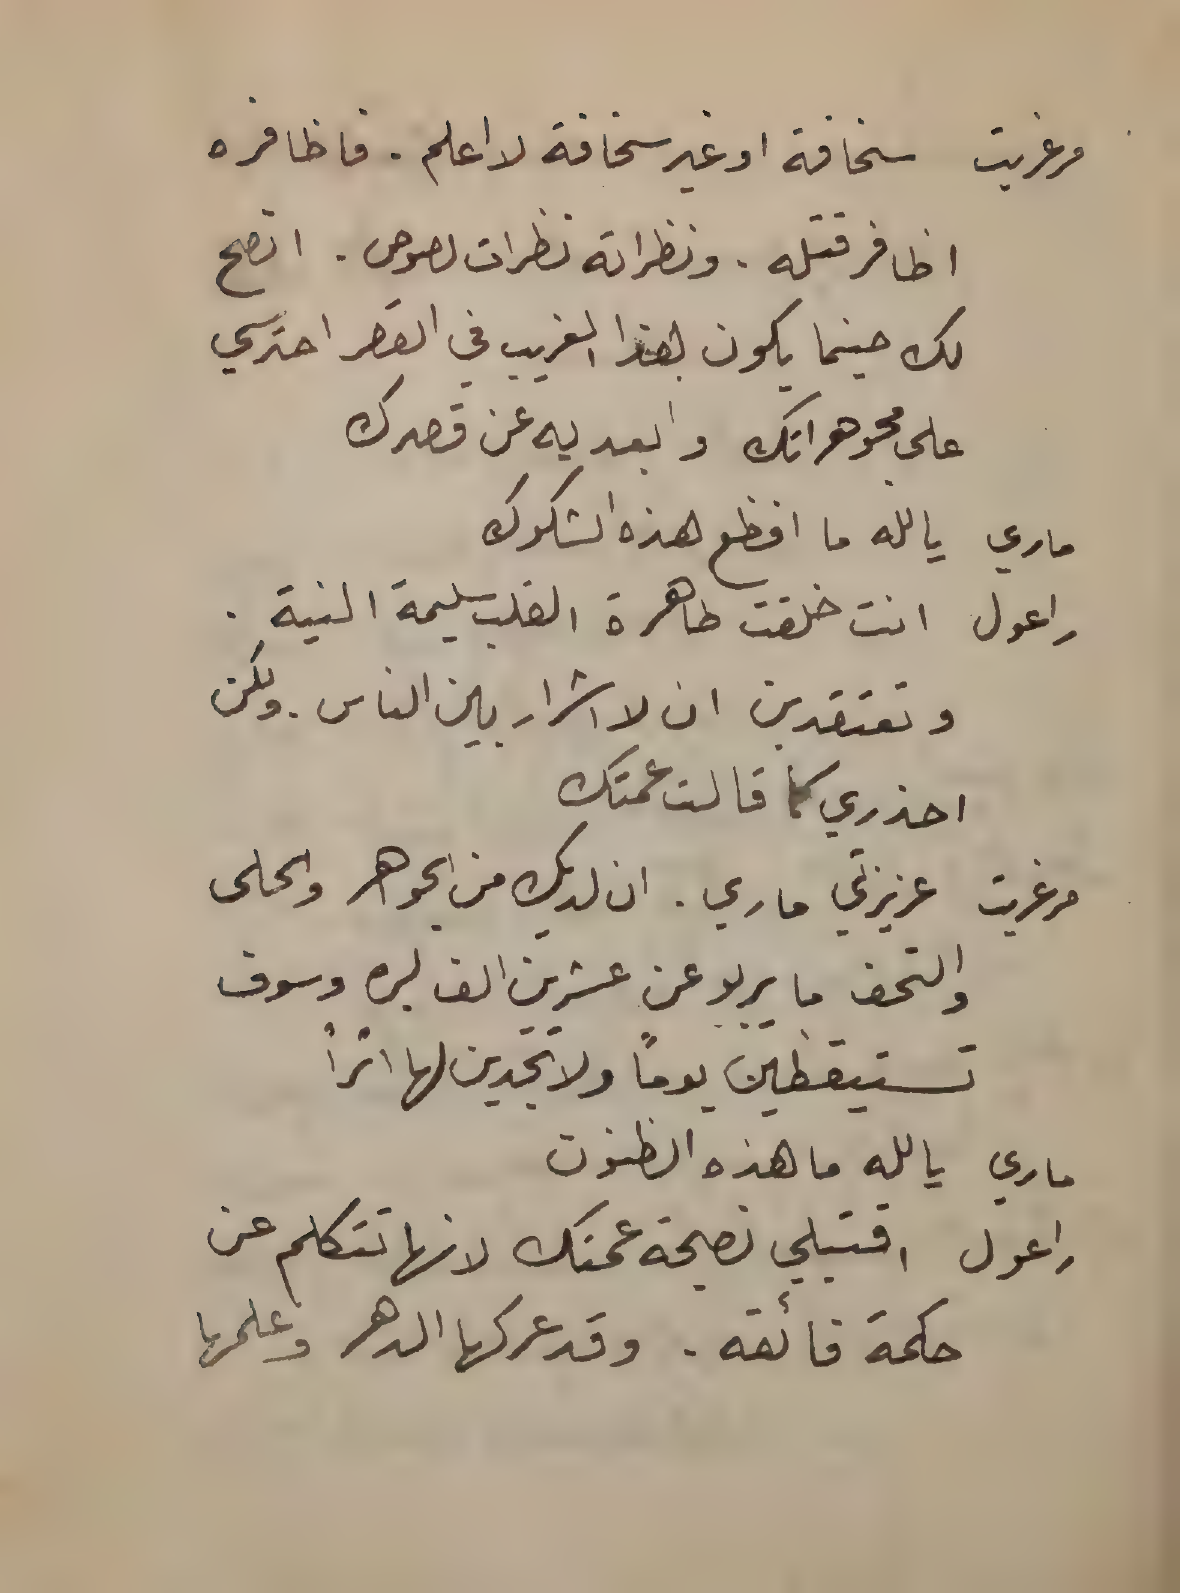 مرغريت سخافة او غير سخافة لا اعلم . فاظافره
اظافر قتله . ونظراته نظرات لصوص . انصح
لك حينما يكون هذا الغريب في القصر احترسي
على مجوهراتك وابعديه عن قصرك
ماري يالله ما افظع هذه الشكوك
راعول انت خلقت طاهرة القلب سليمة النية .
وتعتقدين ان لا اشرار بين الناس . ولكن
احذري كما قالت عمتك
مرغريت عزيزتي ماري . ان لديك من الجواهر والحلى
والتحف ما يربو عن عشرين الف ليره وسوف
تستيقظين يوماً ولا تجدين لها اثراً
ماري يالله ما هذه الظنون
راعول اقتبلي نصيحة عمتك لانها تتكلم عن
حكمة فائقه . وقد عركها الدهر وعلمها